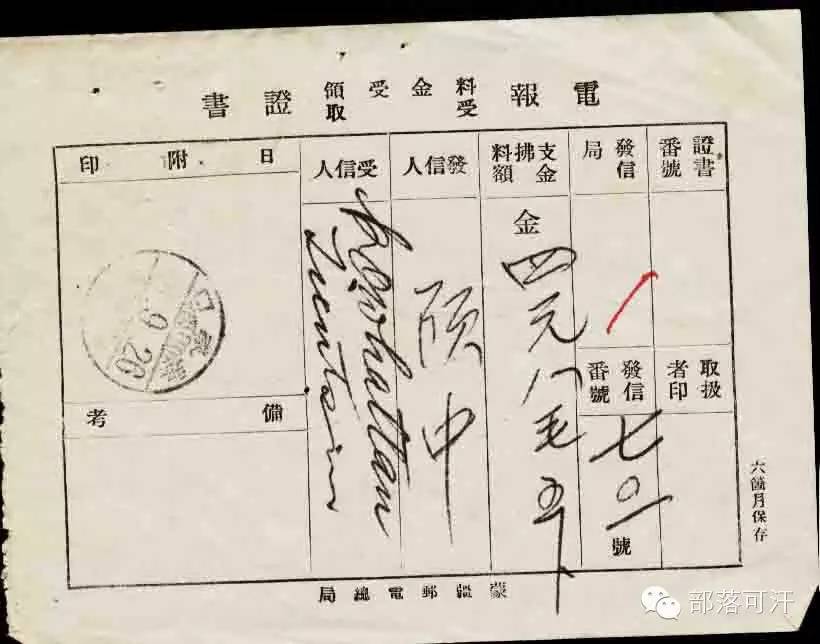 電報料金受領受取證書
證書番號
發信局
支拂料金額
發信人
受信人
日附印
金四元八毛五
取扱者印
發信番號
七〇一號
9 26
備考
六箇月保存
蒙疆郵電總局
部落可汗